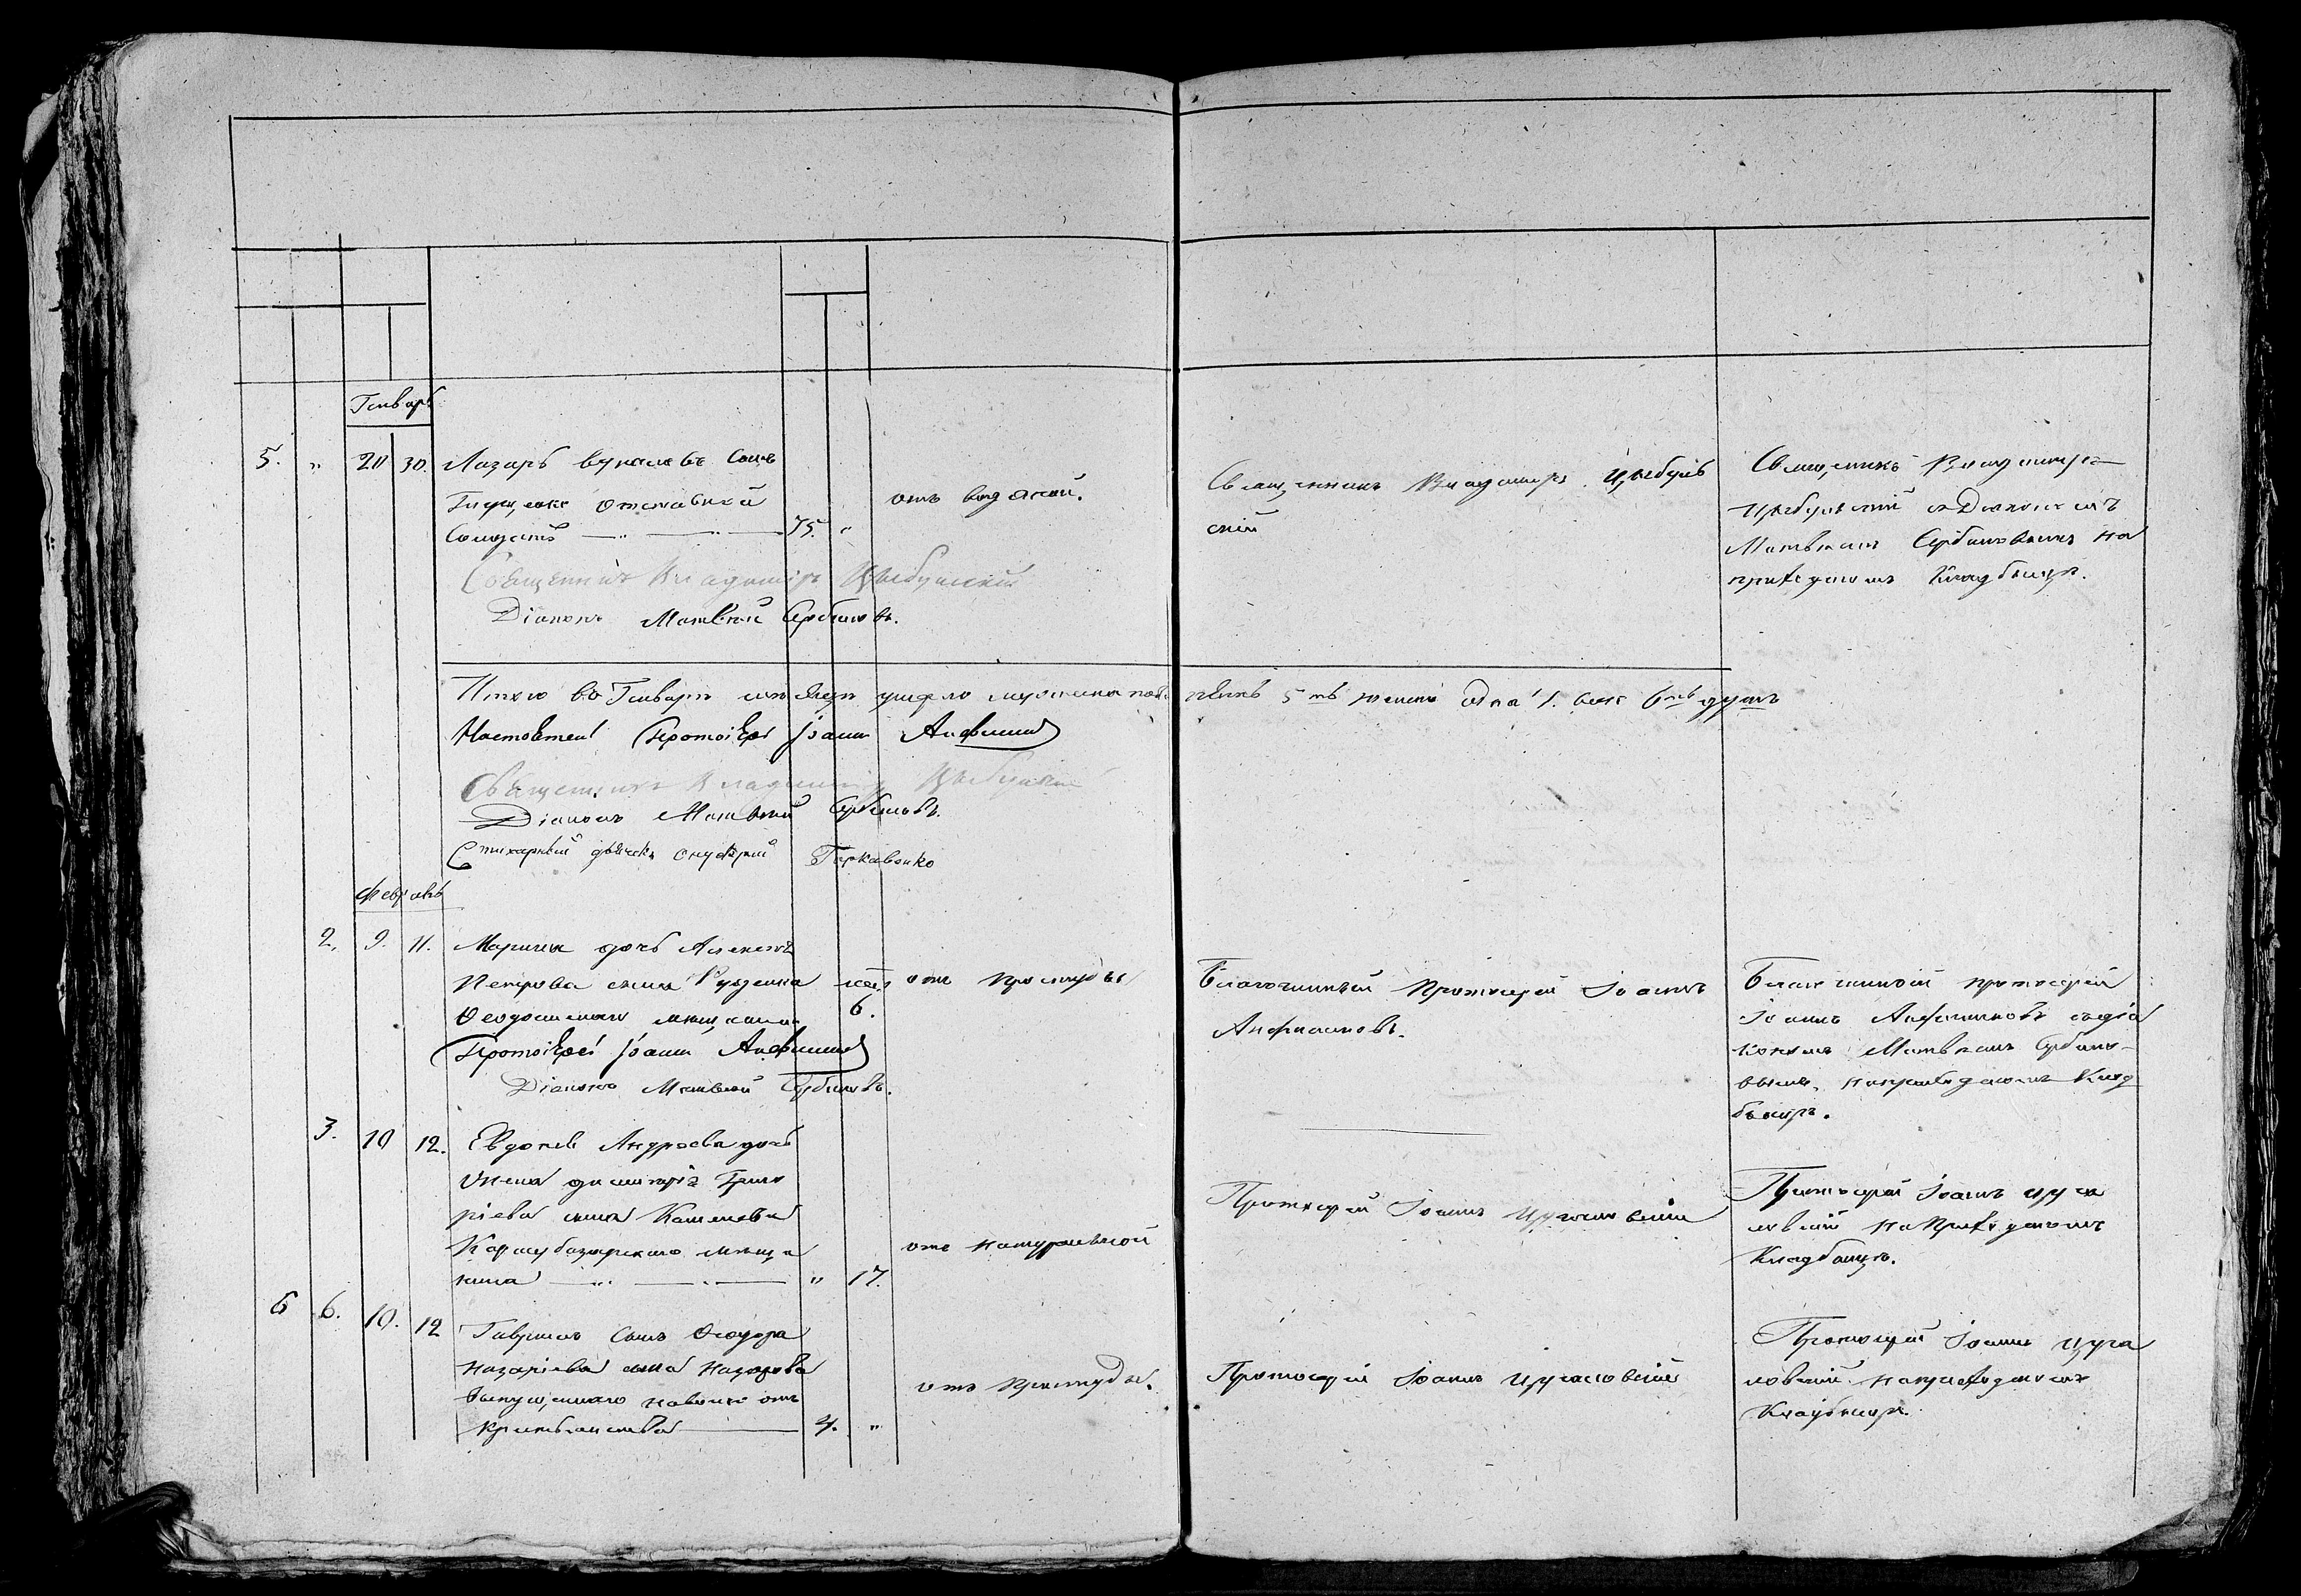 Генварь
5. " 20 30. Лазарь Вукаловъ Сынъ
отставной
Солдатъ 75. "
отъ водяной.
Священникъ Владимиръ Цыбуль
скій
Священникъ Владимиръ
Цыбульскій съ Діакономъ
Матвѣемъ Сербиновымъ на
приходскомъ Кладбищѣ.
Священникъ Владимиръ Цыбульскій
Діаконъ Матвѣй Сербиновъ.
Итого въ Генварѣ мѣсяцѣ умерло мужеска пола
5ть женска одна 1. всѣхъ 6ть душъ
Настоятель Протоіерей Іоаннъ
Священникъ Владимиръ Цыбульскій
Діаконъ Матвѣй Сербиновъ.
Стихарный дьячекъ Онуфрій Гаркавенко
Февраль
2. 9. 11. Марина дочь Алексѣя
Петрова сына Руденка
Феодосійскаго мѣщанина 6.
отъ простуды
Благочинный Протоіерей Іоаннъ
Благочинный протоіерей
Іоаннъ съ діа
кономъ Матвѣемъ Сербино-
вымъ, на приходскомъ Клад
бищѣ.
Протоіерей Іоаннъ
Діаконъ Матвѣй Сербиновъ.
3. 10 12. Андреева дочь
жена Димитрія Григо
ріева сына
Карасубазарскаго мѣща
нина " 17.
отъ натуральной
Протоіерей Іоаннъ
Протоіерей Іоаннъ
на приходскомъ
Кладбищѣ.
6 6. 10. 12 Гавріилъ Сынъ Феодора
Назаріева сына Назарова
выпущеннаго на волю отъ
крестьянства 4. "
отъ простуды.
Протоіерей Іоаннъ
Протоіерей Іоаннъ
на приходскомъ
Кладбищѣ.